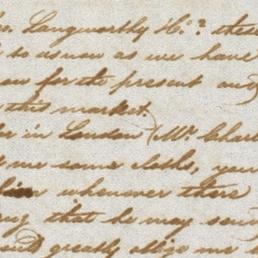 Langworthy H: these
to us now as we have
for the present and
this market.
in London (Mr. Charl
me some cloths, you
him whenever there
that he may sen
greatly oblige me